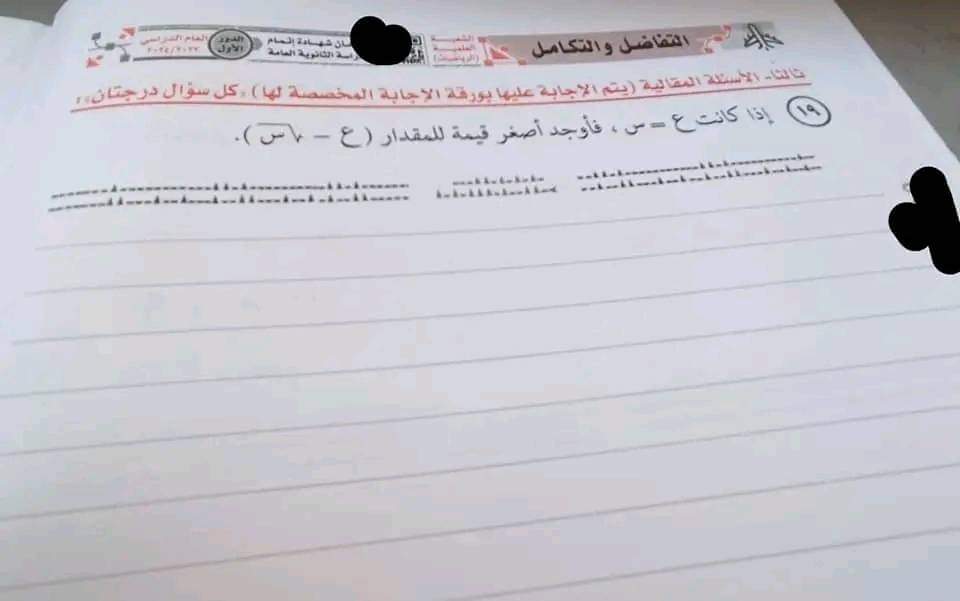 التفاضل والتكامل
الشعبة
العلمية
(الرياضيات)
شهادة إتمام
الثانوية العامة
الدور
الأول
العام الدراسي
٢٠٢٤/٢٠٢٣
ثالثاً- الأسئلة المقالية (يتم الإجابة عليها بورقة الإجابة المخصصة لها) «كل سؤال درجتان»:
١٩ إذا كانت ع = س ، فأوجد أصغر قيمة للمقدار (ع - √س).